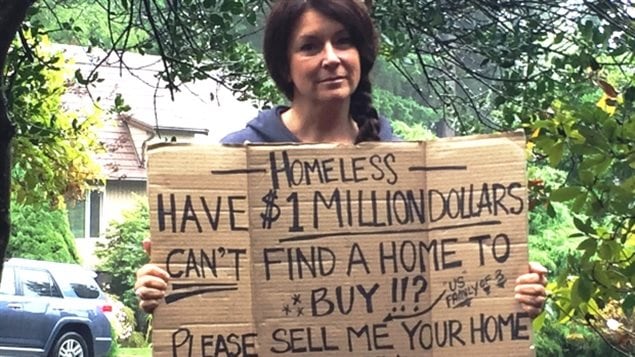 — HOMELESS —
HAVE $1 MILLION DOLLARS
CAN'T FIND A HOME TO
BUY !!?
"US"
FAMILY OF 3
PLEASE SELL ME YOUR HOME